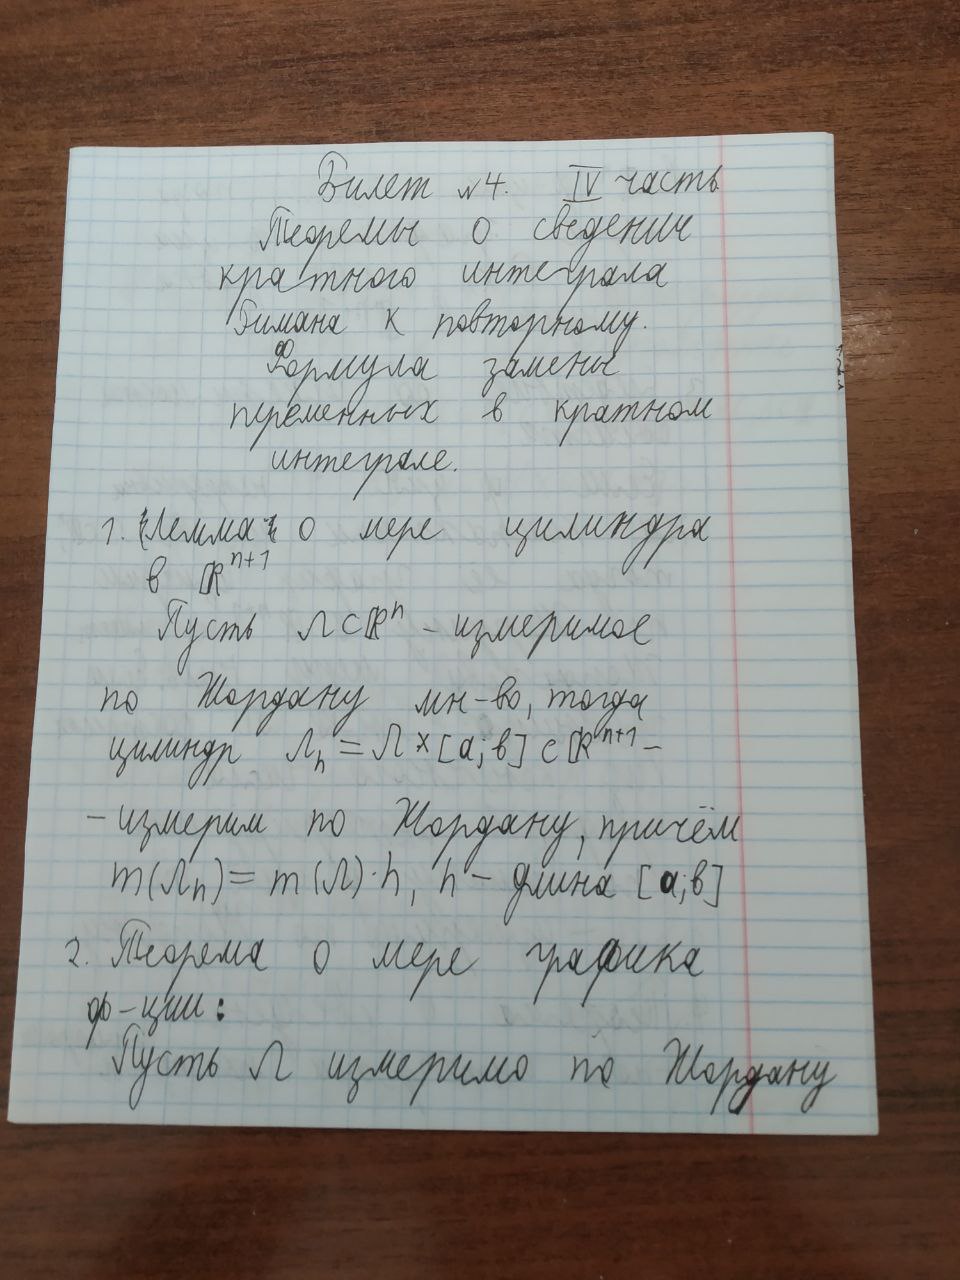 Билет №4. IV часть
Теоремы о сведении
кратного интеграла
Римана к повторному.
Формула замены
переменных в кратном
интеграле.
1. Лемма о мере цилиндра
в ℝⁿ⁺¹
Пусть Ω ⊂ ℝⁿ - измеримое
по Жордану мн-во, тогда
цилиндр Ωₕ = Ω × [a;b] ⊂ ℝⁿ⁺¹ -
- измерим по Жордану, причём
m(Ωₕ) = m(Ω)·h, h - длина [a;b]
2. Теорема о мере графика
ф-ции:
Пусть Ω измеримо по Жордану